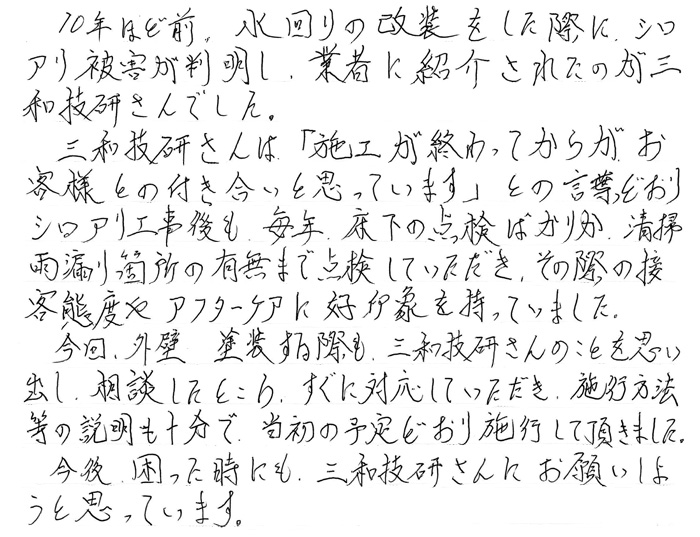 10年ほど前、水回りの改装をした際に、シロ
アリ被害が判明し、業者に紹介されたのが三
和技研さんでした。
三和技研さんは、「施工が終わってからが、お
客様との付き合いと思っています」との言葉どおり
シロアリ工事後も、毎年、床下の点検ばかりか、清掃
雨漏り箇所の有無まで点検していただき、その際の接
客態度や アフターケアに好印象を持っていました。
今回、外壁 塗装する際も、三和技研さんのことを思い
出し、相談したところ、すぐに対応していただき、施行方法
等の説明も十分で、当初の予定どおり施行して頂きました。
今後、困った時にも、三和技研さんに お願いしよ
うと思っています。